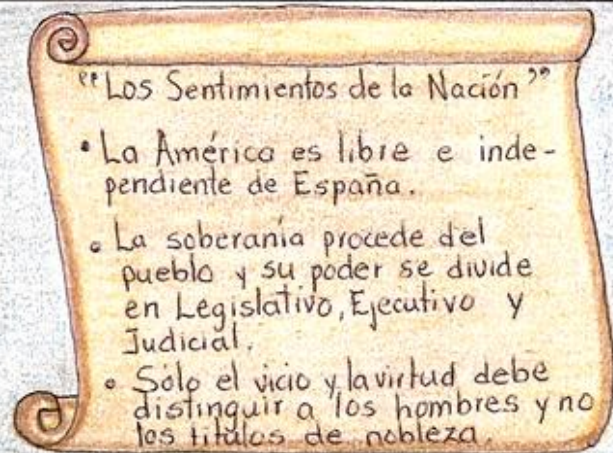 “Los Sentimientos de la Nación”
• La América es libre e inde-
pendiente de España.
• La soberanía procede del
pueblo y su poder se divide
en Legislativo, Ejecutivo y
Judicial.
• Sólo el vicio y la virtud debe
distinguir a los hombres y no
los titulos de nobleza.